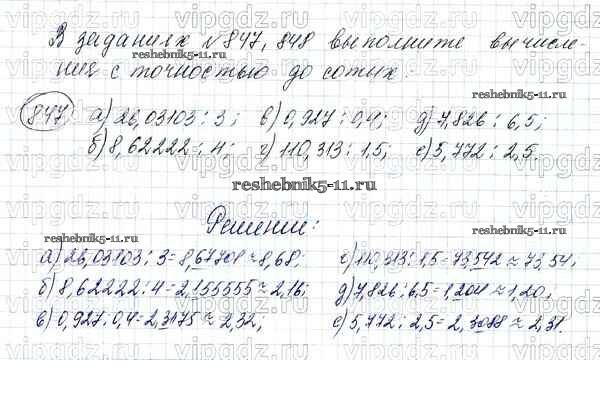 В заданиях № 847, 848 выполните вычисле-
ния с точностью до сотых.
reshebnik5-11.ru
847 а) 26,03103 : 3; в) 0,927 : 0,4; д) 7,826 : 6,5;
б) 8,62222 : 4; г) 110,313 : 1,5; е) 5,772 : 2,5.
reshebnik5-11.ru
Решение:
reshebnik5-11.ru
а) 26,03103 : 3 = 8,67701 ≈ 8,68; г) 110,313 : 1,5 = 73,542 ≈ 73,54;
б) 8,62222 : 4 = 2,155555 ≈ 2,16; д) 7,826 : 6,5 = 1,204 ≈ 1,20;
в) 0,927 : 0,4 = 2,3175 ≈ 2,32; е) 5,772 : 2,5 = 2,3088 ≈ 2,31.
reshebnik5-11.ru
vipgdz.ru vipgdz.ru vipgdz.ru vipgdz.ru